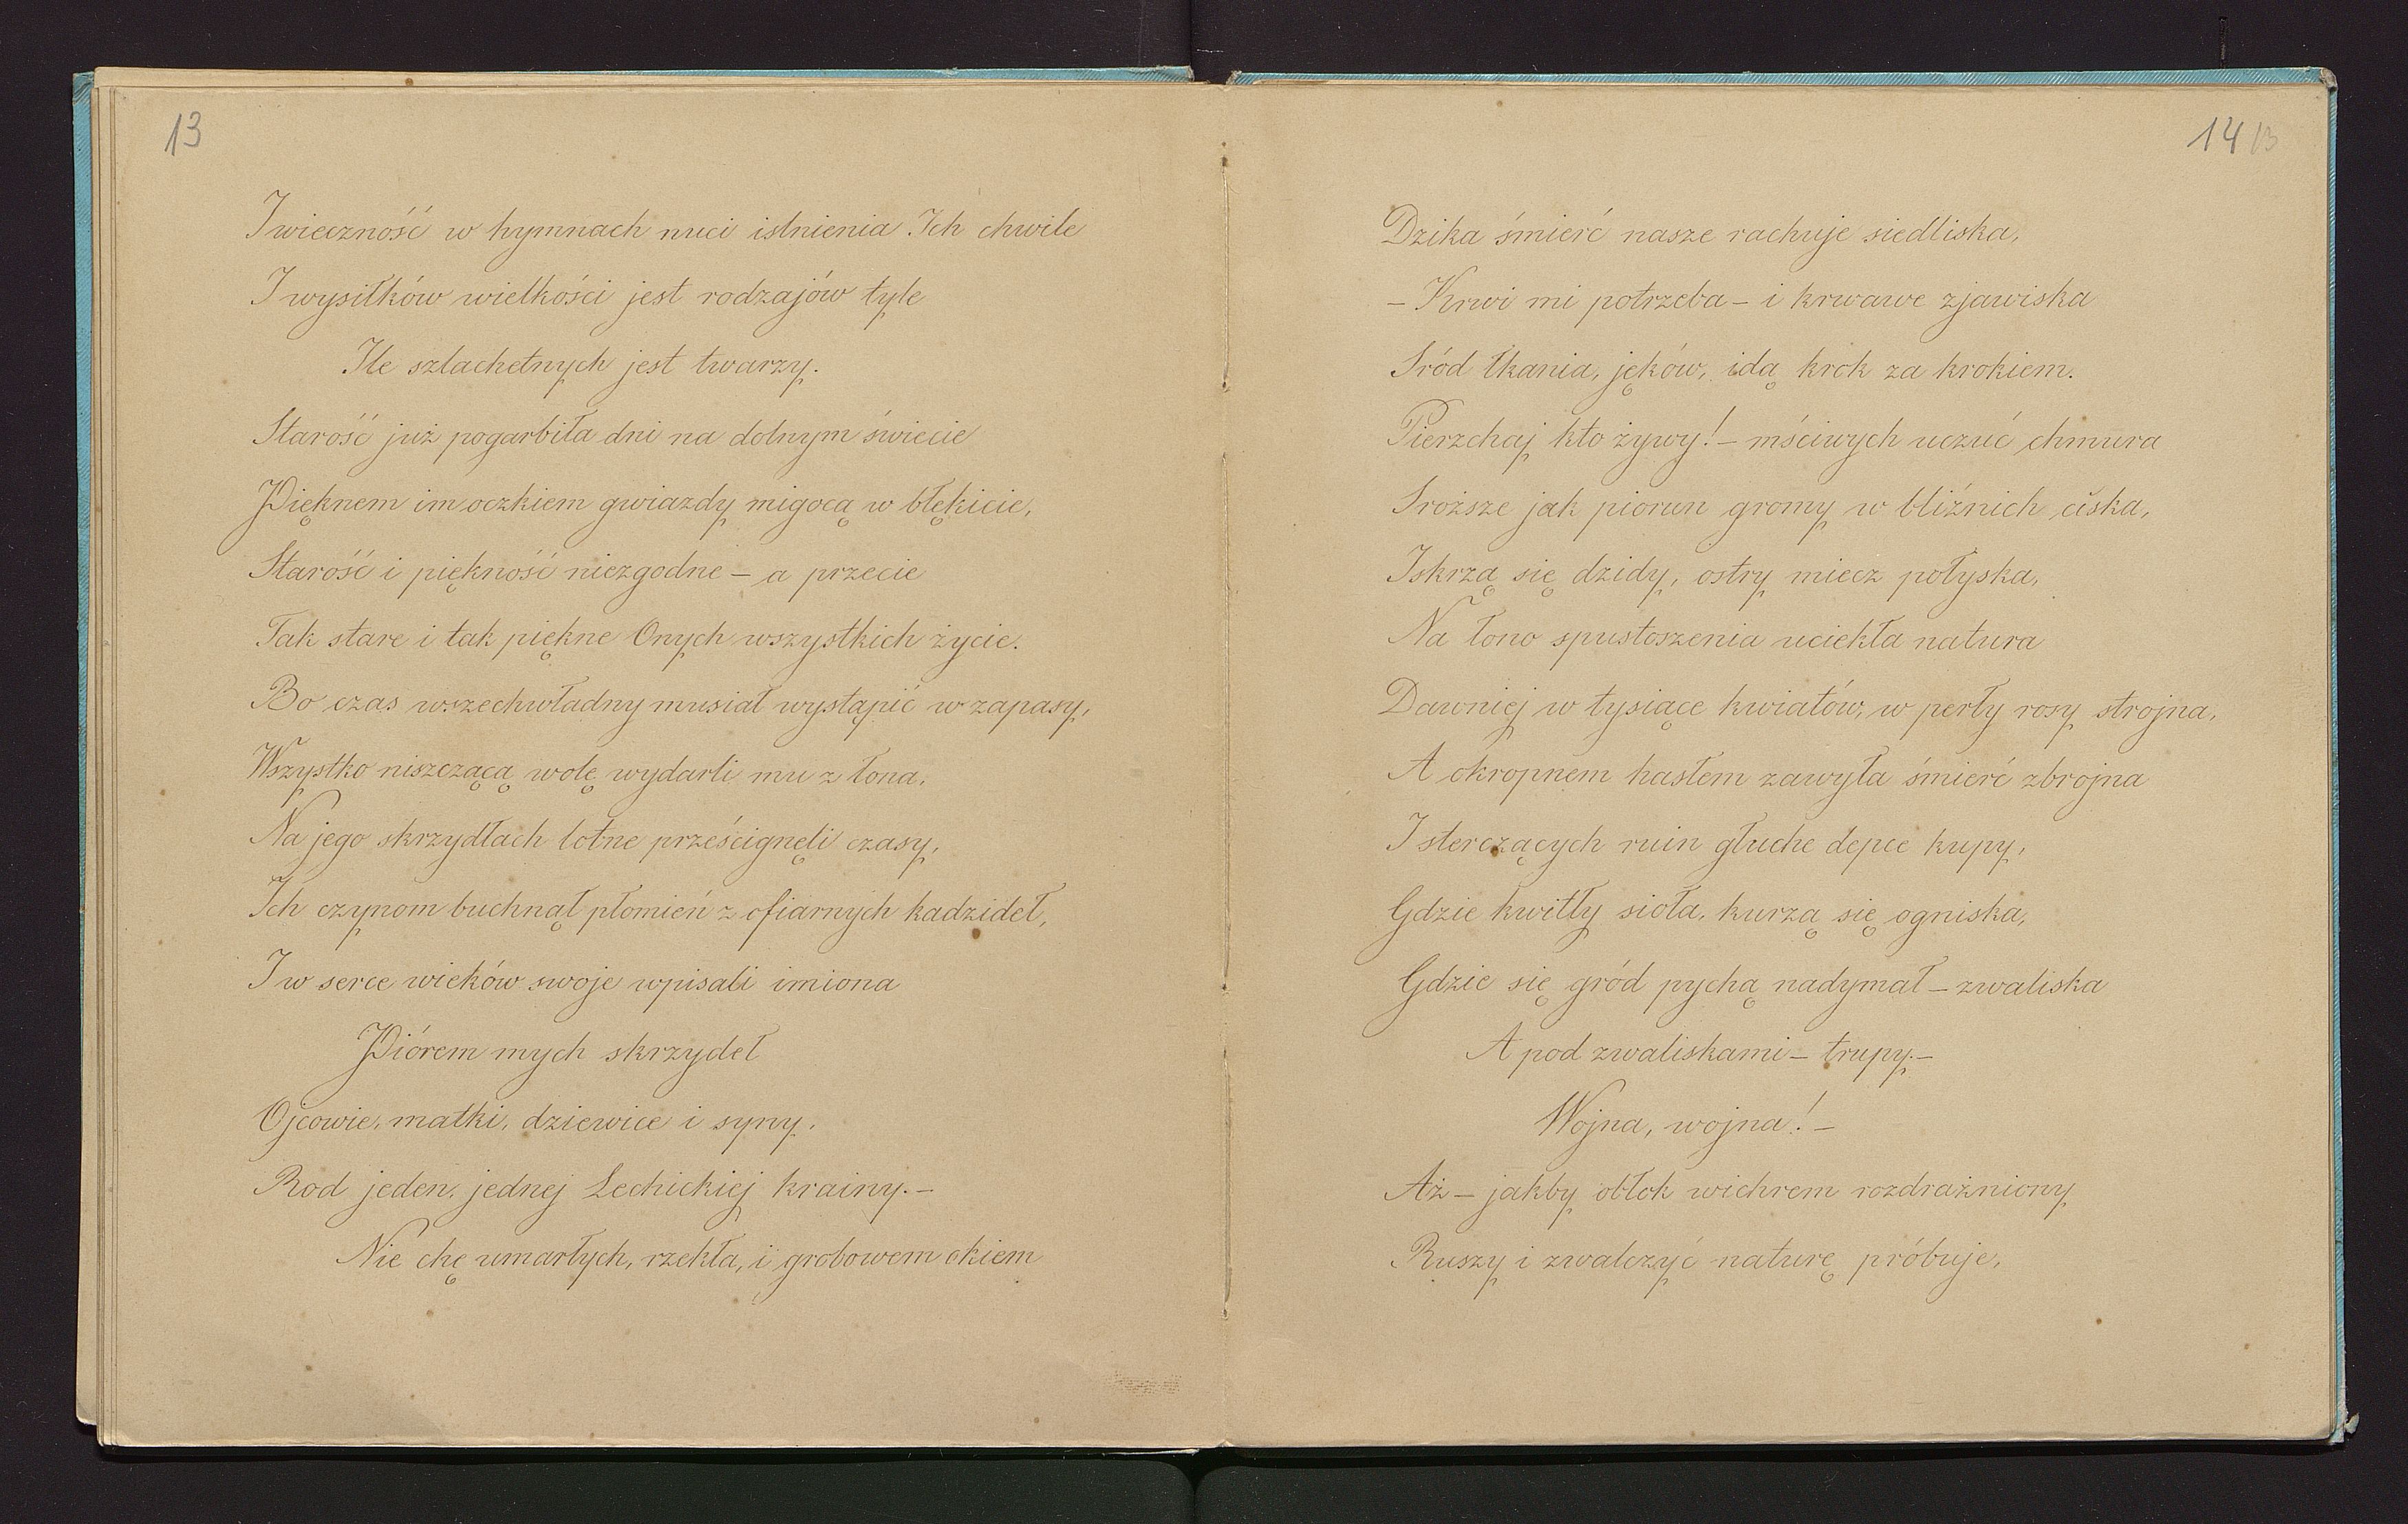 13
I wieczność w hymnach nuci istnienia Ich chwile
I wysiłków wielkości jest rodzajów tyle
Ile szlachetnych jest twarzy.
Starość już pogarbiła dni na dolnym świecie
Pięknem im oczkiem gwiazdy migocą w błękicie,
Starość i piękność niezgodne – a przecie
Tak stare i tak piękne Onych wszystkich życie.
Bo czas wszechwładny musiał wystąpić w zapasy,
Wszystko niszczącą wolę wydarli mu z łona,
Na jego skrzydłach lotne prześcignęli czasy,
Ich czynom buchnął płomień z ofiarnych kadzideł,
I w serce wieków swoje wpisali imiona
Piórem mych skrzydeł
Ojcowie, matki, dziewice i syny,
Rod jeden, jednej Lechickiej krainy. –
Nie chę umarłych, rzekła, i grobowem okiem
14 13
Dzika śmierć nasze rachuje siedliska,
– Krwi mi potrzeba – i krwawe zjawiska
Sród łkania, jęków, idą krok za krokiem.
Pierzchaj kto żywy! – mściwych uczuć chmura
Sroższe jak piorun gromy w bliźnich ciska,
Iskrzą się dzidy, ostry miecz połyska,
Na łono spustoszenia uciekła natura
Dawniej w tysiące kwiatów, w perły rosy strojna,
A okropnem hasłem zawyła śmierć zbrojna
I sterczących ruin głuche depce kupy,
Gdzie kwitły sioła, kurzą się ogniska,
Gdzie się gród pychą nadymał – zwaliska
A pod zwaliskami – trupy. –
Wojna, wojna! –
Aż – jakby obłok wichrem rozdrażniony
Ruszy i zwalczyć naturę próbuje,